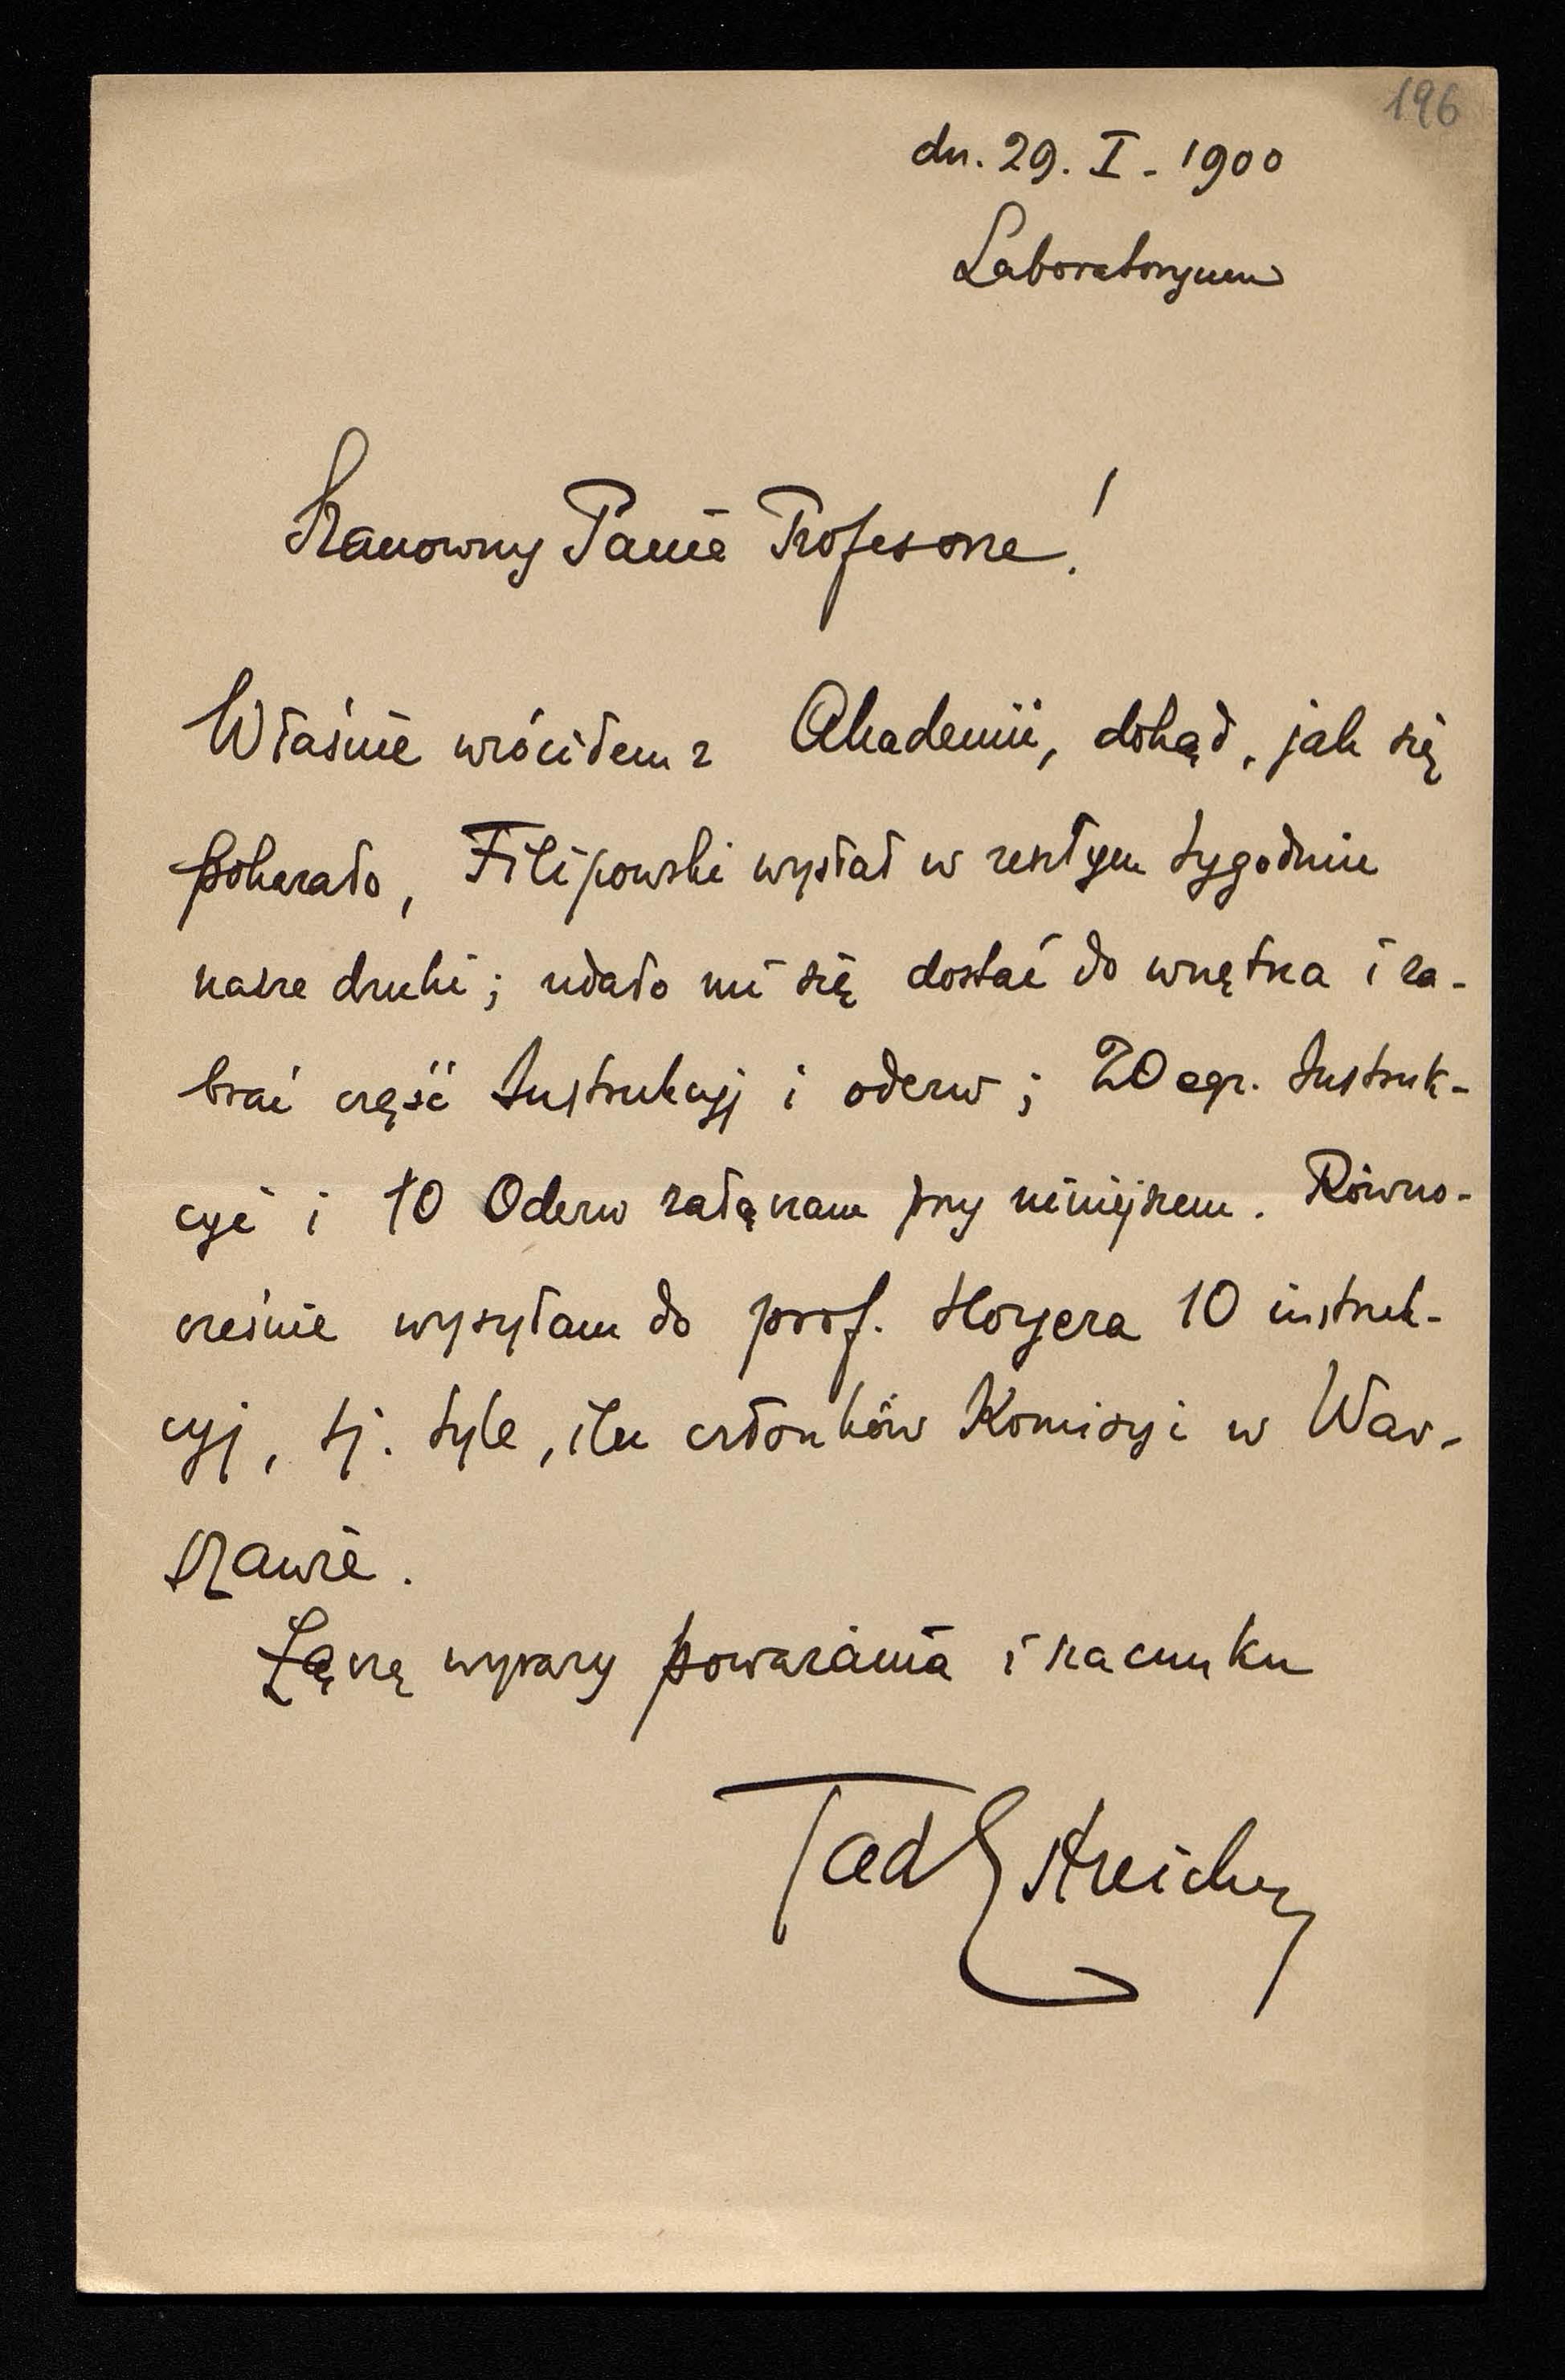 196
dn. 29. I - 1900
Laboratoryum
Szanowny Panie Profesorze!
Właśnie wróciłem z Akademii, dokąd, jak się
pokazało, Filipowski wysłał w zeszłym tygodniu
nasze druki; udało mi się dostać do wnętrza i za-
brać część Instrukcyj i odezw; 20 egz. Instruk-
cyi i 10 Odezw załączam przy niniejszem. Równo-
cześnie wysyłam do prof. Hoyera 10 instruk-
cyj, tj. tyle, ilu członków Komisyi w War-
szawie.
Łączę wyrazy poważania i szacunku
Tad Estreicher